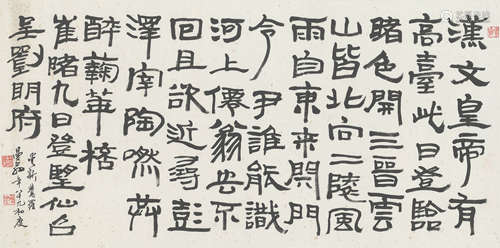 漢文皇帝有
高臺此日登臨
曙色開三晉雲
山皆北向二陵風
雨自東来関門
令尹誰能識
河上僊翁去不
回且欲近尋彭
澤宰陶然共
醉蘜華桮
崔曙九日登望仙台
呈劉明府